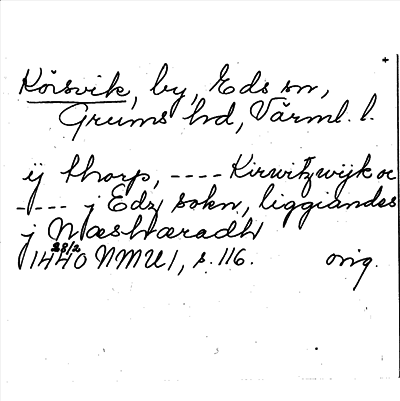 Körsvik, by, Eds sn,
Grums hd, Värml. l.
ij thorp, ---- Kirwitzwijk oc
---- j Edz sokn, liggiandes
j Næshæradh
28/2
1440 NMU 1, s. 116. orig.